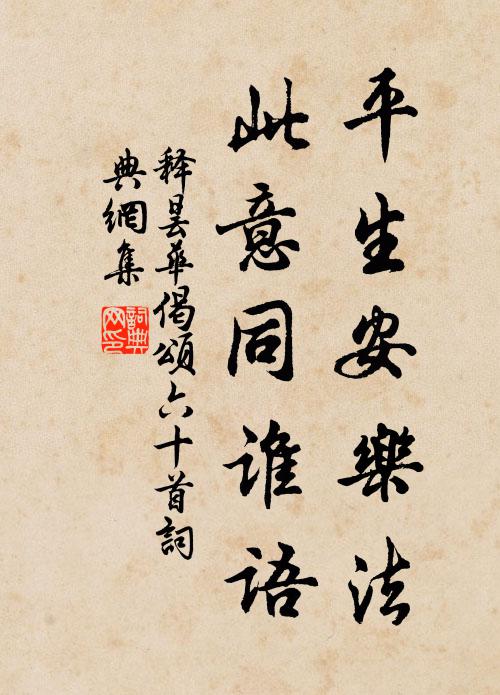 平生安樂法
此意同誰語
释昙華偈頌六十首詞
典網集
詞典网印